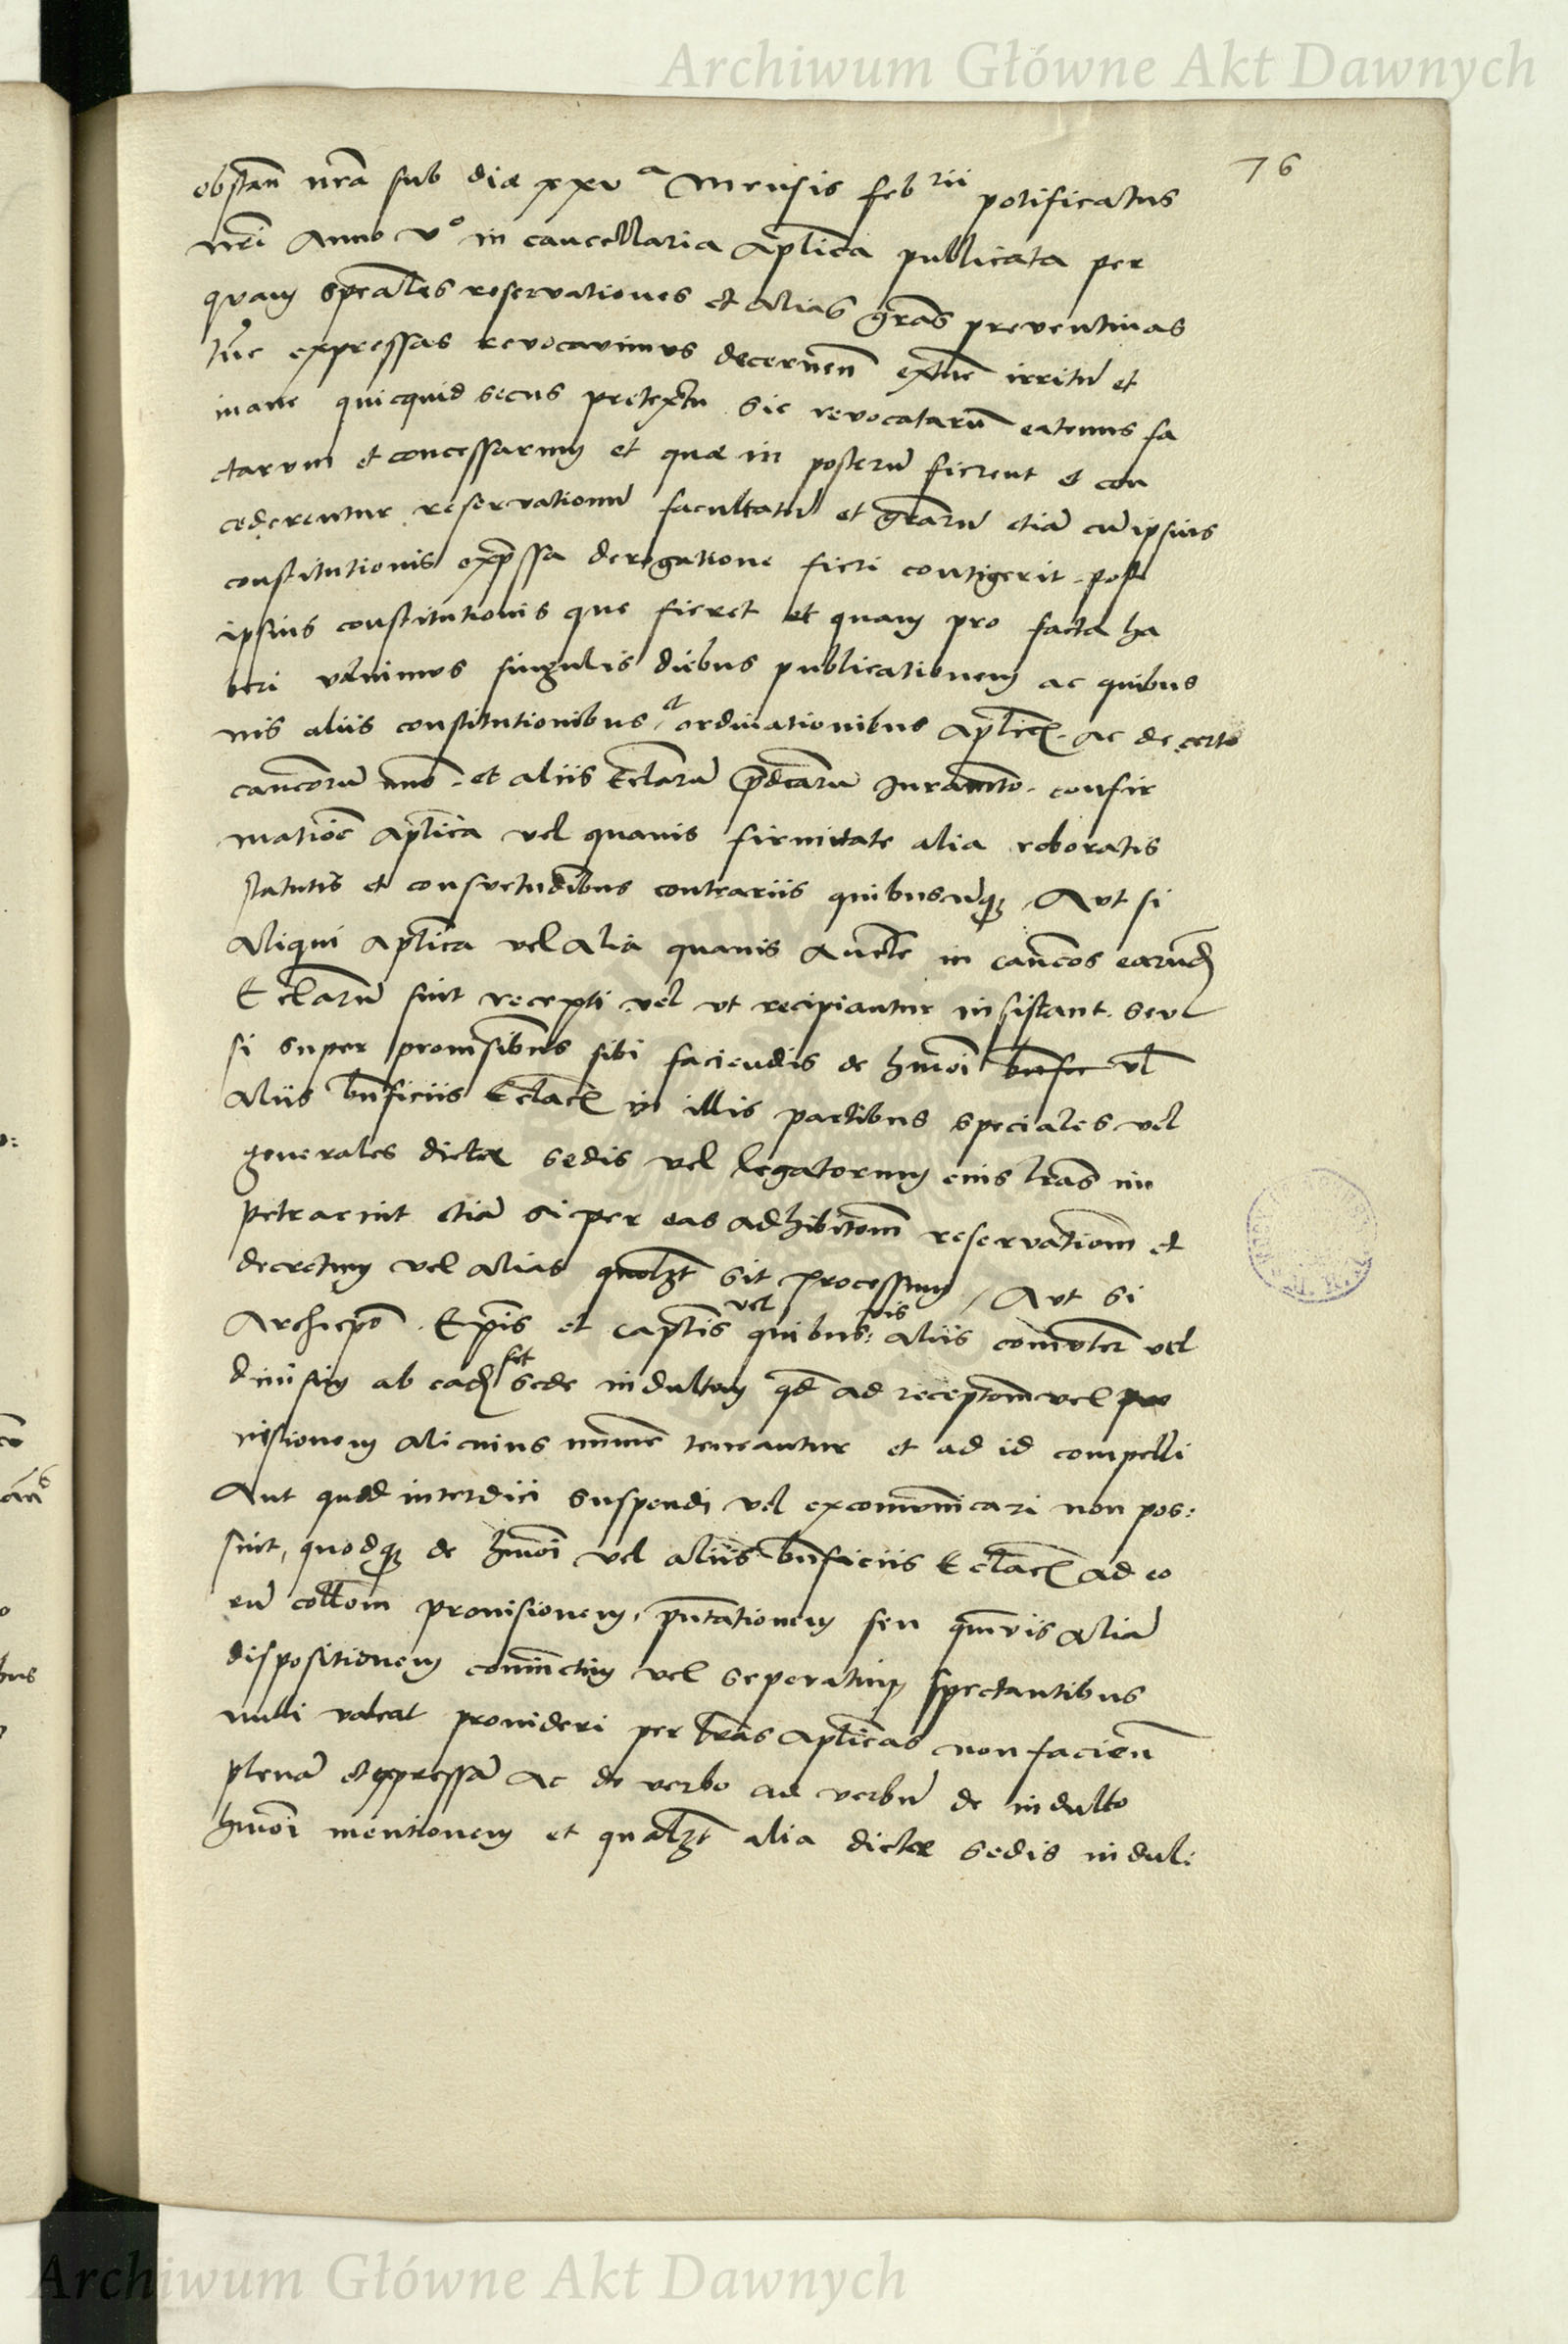 Archiwum Główne Akt Dawnych
76
obstan̄ nr̄a sub die xxv a Mensis feb rii pōtificatus
nr̄i Anno v° in cancellaria Ap̄lica publicata per
quam spēales reservationes et Alias gr̄as preventivas
tūc expressas revocavimus decernen̄ extūc irritū et
inane quicquid secus pretextu sic revocatarū eatenus fa
ctarum et concessarum et quae in posterū fierent et con
cederentur reservationū facultatū et gr̄arū etiā cū ipsius
constitutionis exp̄ssa derogatione fieri contigerit post
ipsius constitutionis que fieret et quam pro facta ha
beri volvimus singulis diebus publicationem ac quibus
vis aliis constitutionibus et ordinationibus Ap̄licis. Ac de certo
canc̄orū nūo. et aliis Eccl̄arū p̄dcarū Juramto. confir
matiōe Ap̄lica vel quavis firmitate alia roboratis
statutis et consvetudībus contrariis quibuscūq; Avt si
Aliqui Ap̄lica vel Alia quavis Aucte in canc̄os earund
Eccl̄arū sint recepti vel vt recipiantur insistant. seu
si super provis̄ibus sibi faciendis de hmōi vl
Aliis bn̄ficiis Eccl̄acis in illis partibus speciales vel
generales dictae sedis vel legatorum eius lr̄as im
petrarint etiā si per eas ad hibitom̄ reservatiom̄ et
decretum vel Alias quolzt sit processum, Avt si
Archiepō. Ep̄is et Cap̄tis vel quibus: vis aliis com̄vter vel
divisim ab ead sit sede indultum qd̄ ad receptom̄ vel pro
visionem Alicuius mīme teneantur et ad id compelli
Aut quod interdici suspendi vel excomvnicari non pos:
sint, quodq; de hmōi vel aliis bn̄ficiis Eccl̄acis ad eo
rū collom̄ provisionem, pn̄tationem seu qm̄vis Aliā
dispositionem coniūctim vel seperatim spectantibus
nulli valeat provideri per lr̄as Ap̄licas non facien̄
plenā et expressā Ac de verbo ad verbū de indulto
hmōi mentionem et qualzt alia dictae sedis indul:
Archiwum Główne Akt Dawnych